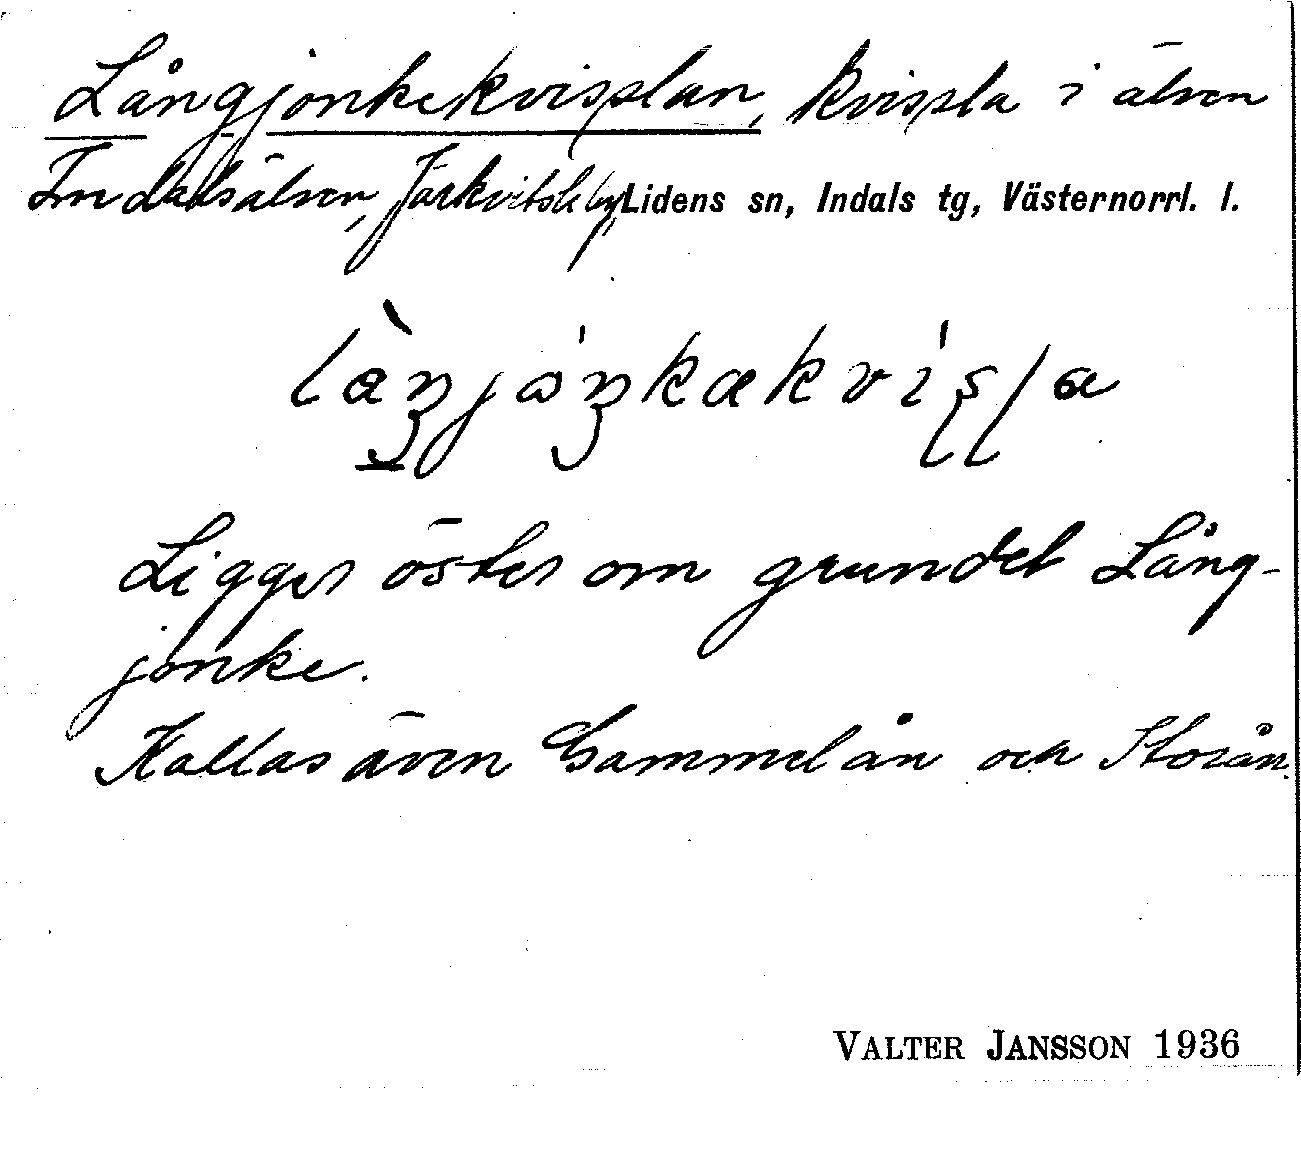 Långjonkekvisslan, kvissla i älven
Indalsälven, Järkvitsle by, Lidens sn, Indals tg, Västernorrl. l.
Ligger öster om grundet Lång-
jonke.
Kallas även Gammelån och Storån.
VALTER JANSSON 1936